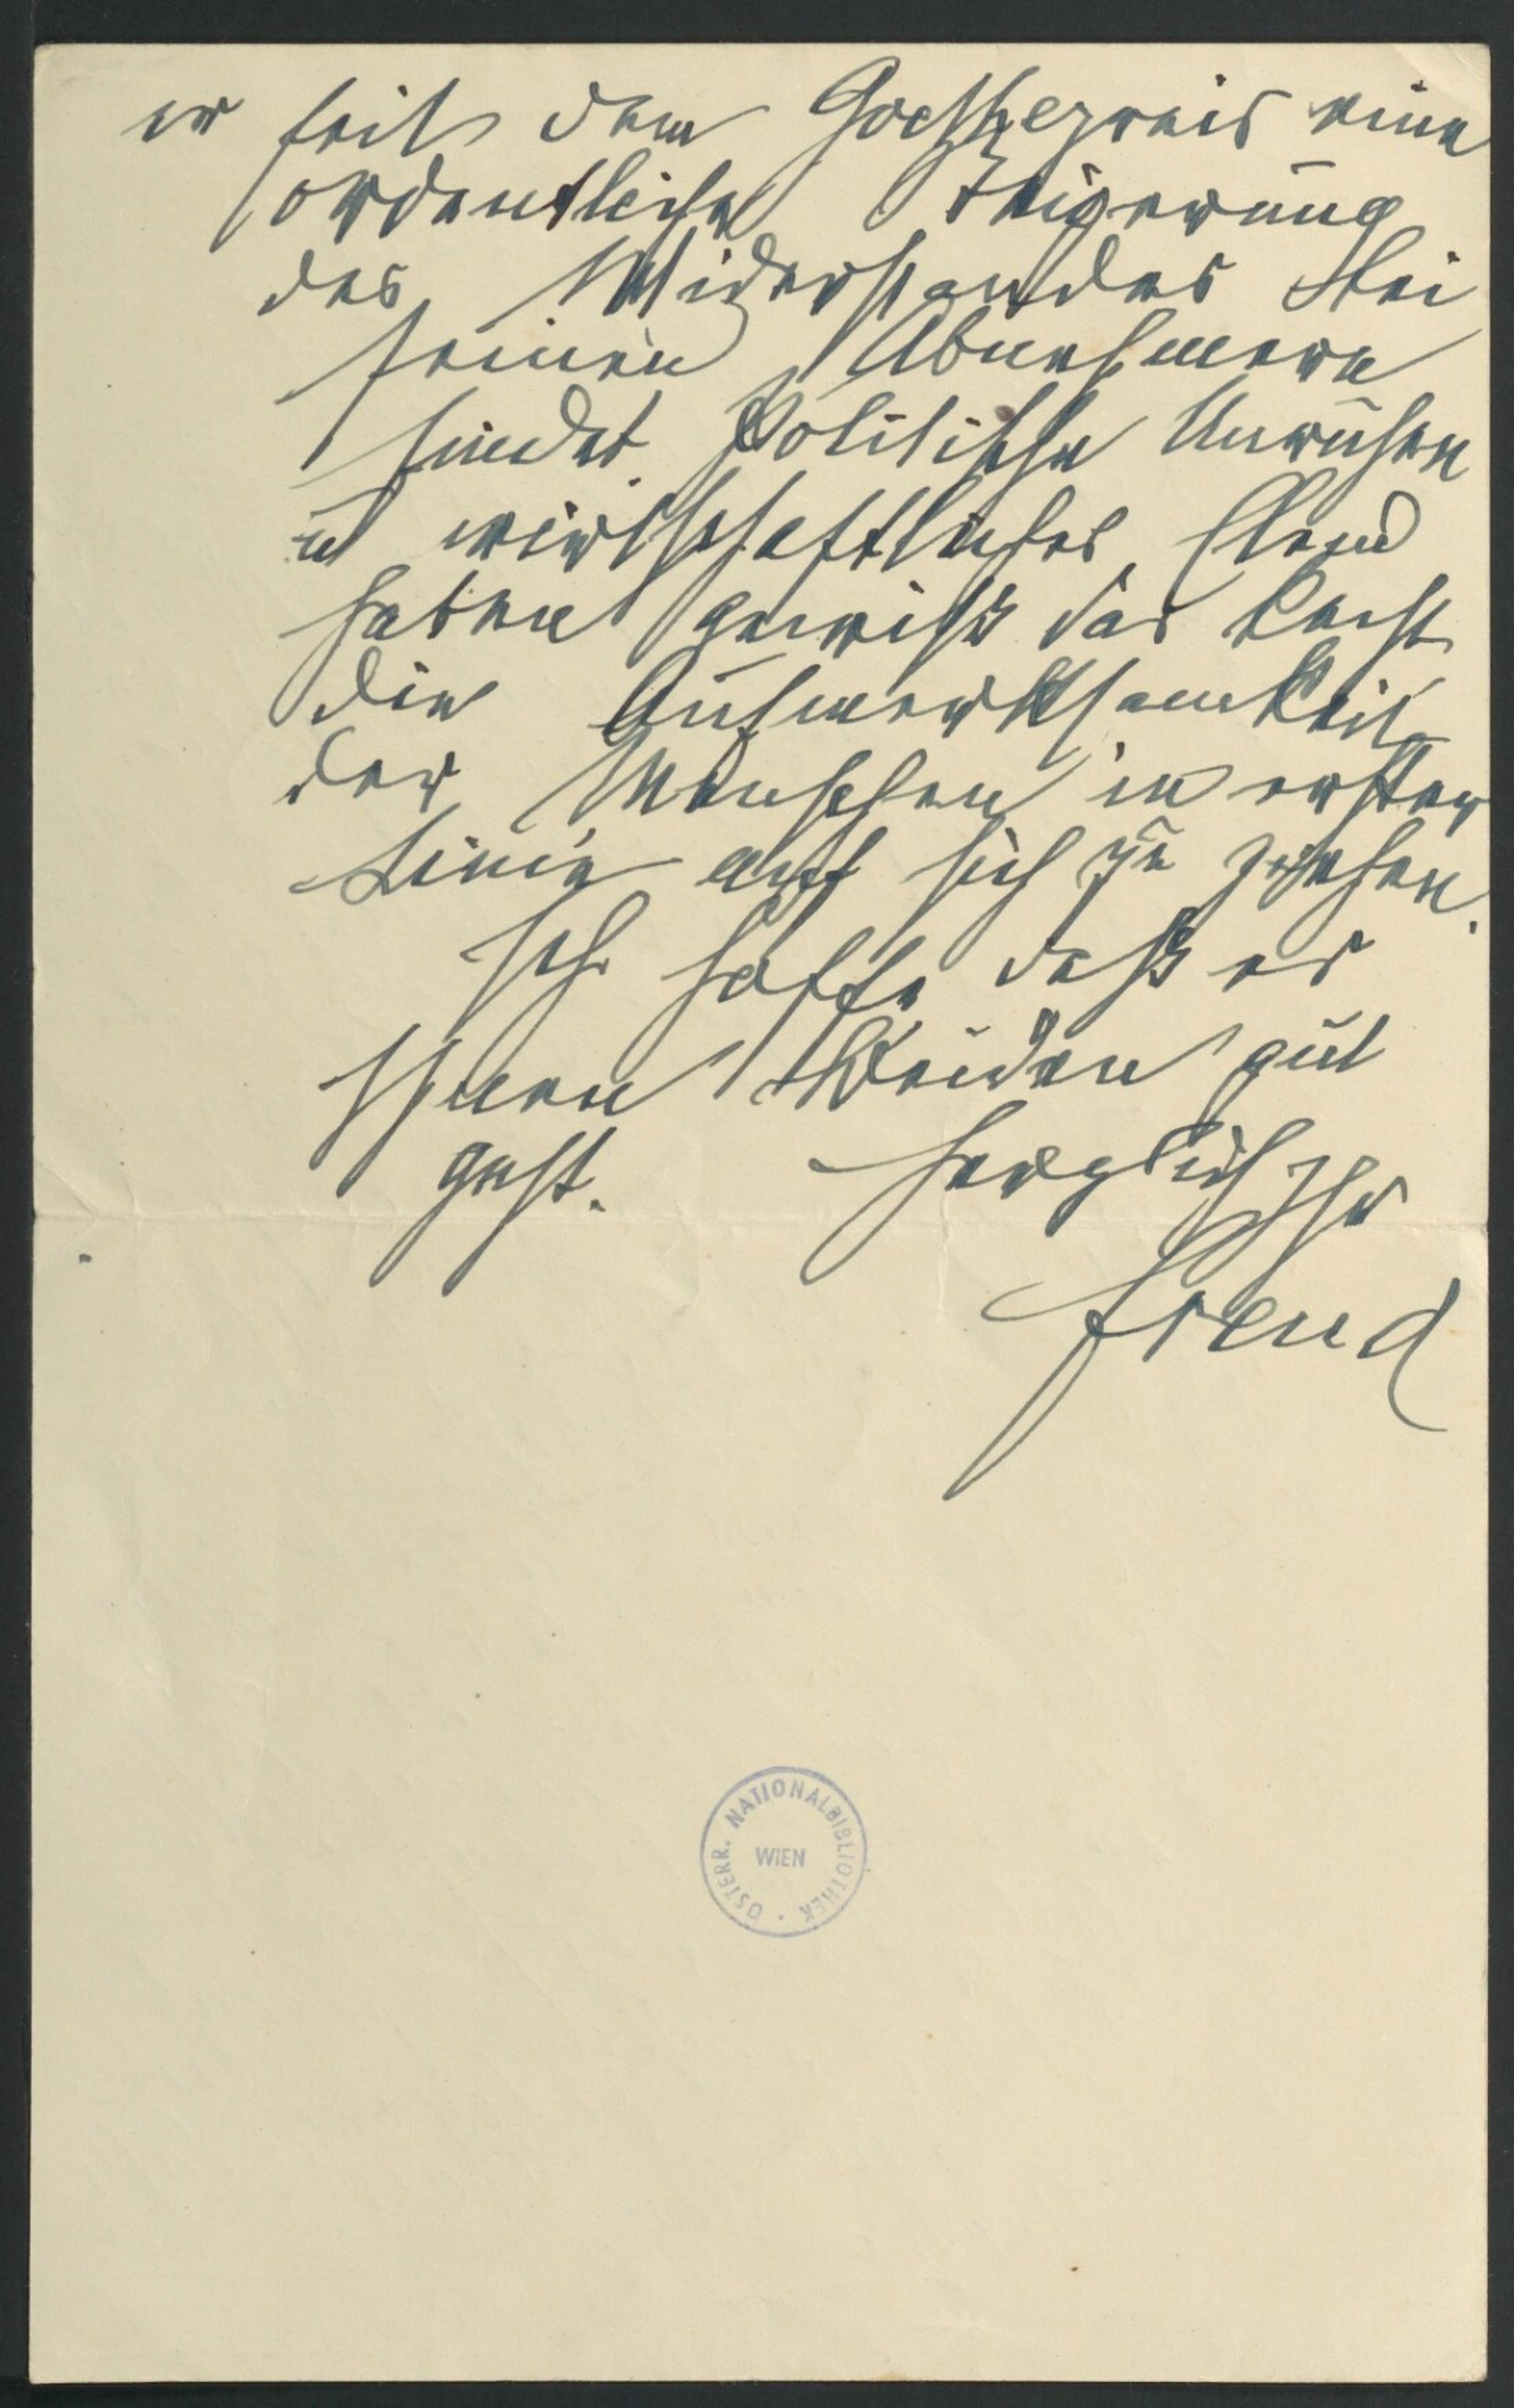 er seit dem Goethepreis eine
ordentliche Steigerung
des Widerstandes bei
seinen Abnehmern
findet. Politische Unruhen
u wirtschaftliches Elend
haben gewiß das Recht
die Aufmerksamkeit
der Menschen in erster
Linie auf sich zu ziehen.
Ich hoffe, daß es
Ihnen Beiden gut
geht. Herzlich Ihr
Freud
ÖSTERR. NATIONALBIBLIOTHEK
WIEN